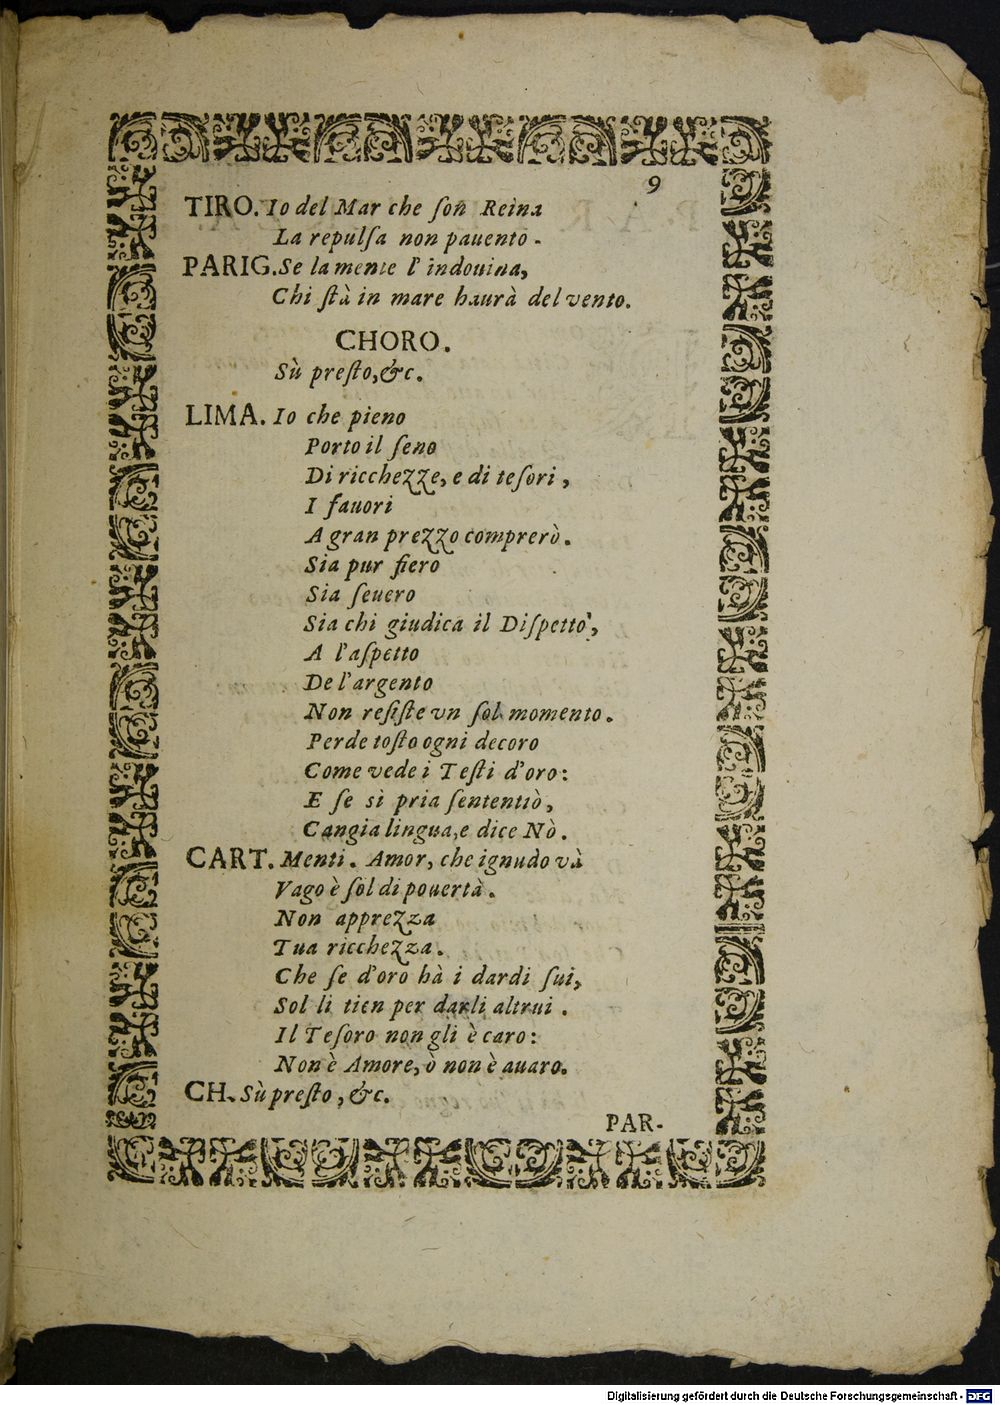 9
TIRO. Io del Mar che ſon Reina
La repulſa non pauento.
PARIG. Se la mente l'indouina,
Chi ſtà in mare haurà del vento.
CHORO.
Sù preſto, &c.
LIMA. Io che pieno
Porto il ſeno
Di ricchezze, e di teſori,
I fauori
A gran prezzo comprerò.
Sia pur fiero
Sia ſeuero
Sia chi giudica il Diſpetto,
A l'aſpetto
De l'argento
Non reſiſte vn ſol momento.
Perde toſto ogni decoro
Come vede i Teſti d'oro:
E ſe sì pria ſententiò,
Cangia lingua, e dice Nò.
CART. Menti. Amor, che ignudo và
Vago è ſol di pouertà.
Non apprezza
Tua ricchezza.
Che ſe d'oro hà i dardi ſui,
Sol li tien per darli altrui.
Il Teſoro non gli è caro:
Non è Amore, ò non è auaro.
CH. Sù preſto, &c.
PAR-
Digitalisierung gefördert durch die Deutsche Forschungsgemeinschaft - DFG